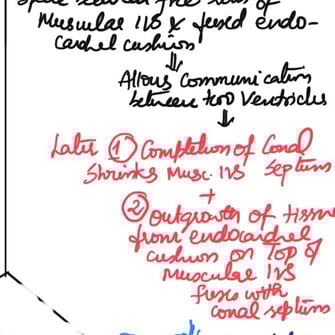 space between free rim of
Muscular IVS & fused endo-
cardial cushion
⇓
Allows Communication
between two Ventricles
⇓
Later ① Completion of Conal
Shrinks Musc. IVS Septum
+
② Outgrowth of tissue
from endocardial
cushion on Top of
Muscular IVS
fuses with
conal septum